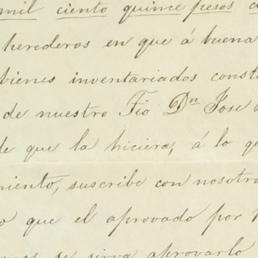 mil ciento quince pesos
herederos en que á buena
bienes inventariados const
de nuestro Tio Dn Jose
de que la hiciera, á lo q
miento, suscribe con nosotro
o que el aprovado por
se sirva aprovarlo